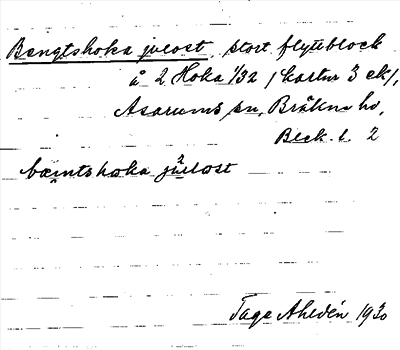 Bengtshoka julost, stort flyttblock
å 2 Hoka 1/32 (kartur 3 ek),
Asarums sn, Bräkne hd,
Bleck. l. 2
bæintshoka jùlost
Tage Ahldén 1930